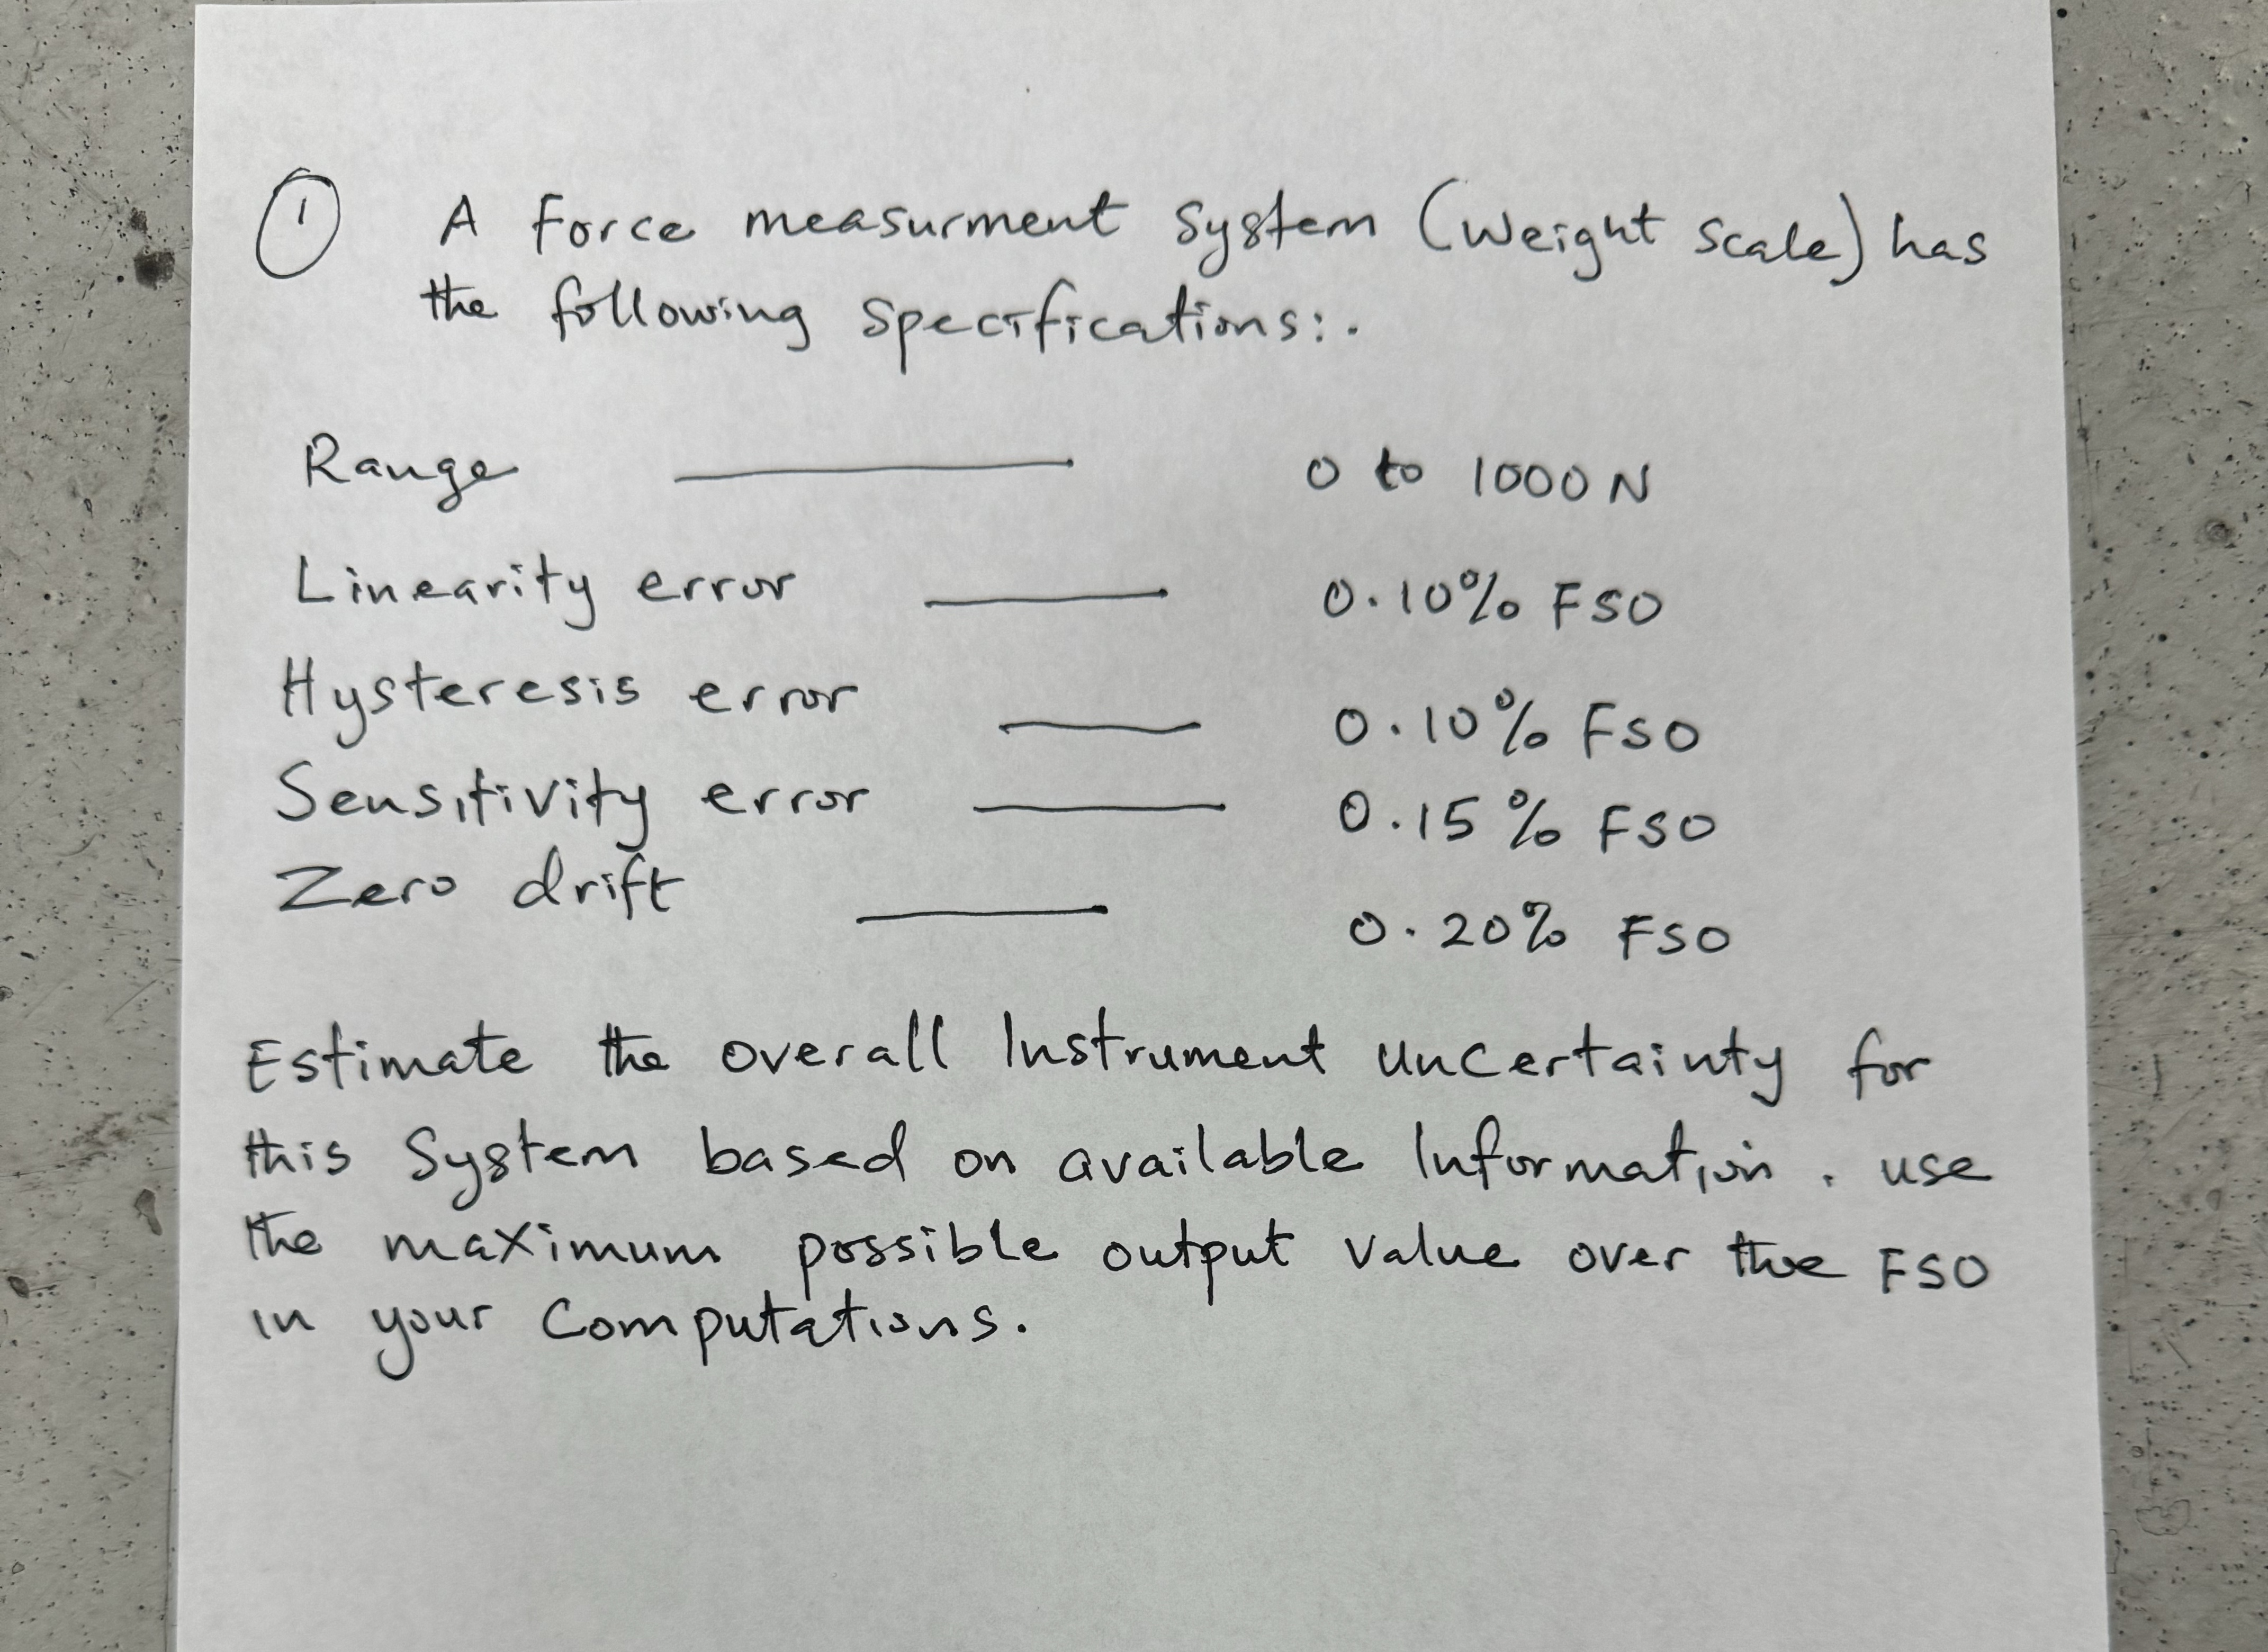 1 A Force measurment system (weight scale) has
the following specifications:.
Range 0 to 1000 N
Linearity error 0.10% FSO
Hysteresis error 0.10% FSO
Sensitivity error 0.15% FSO
Zero drift 0.20% FSO
Estimate the overall Instrument uncertainty for
this System based on available Information. use
the maximum possible output value over the FSO
in your Computations.